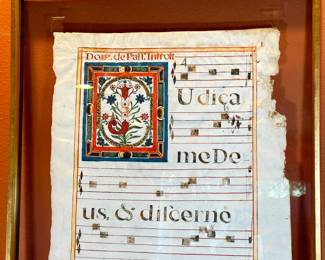 Dom. de Paſſ. Introit
Udica
me De
us, & diſcerne